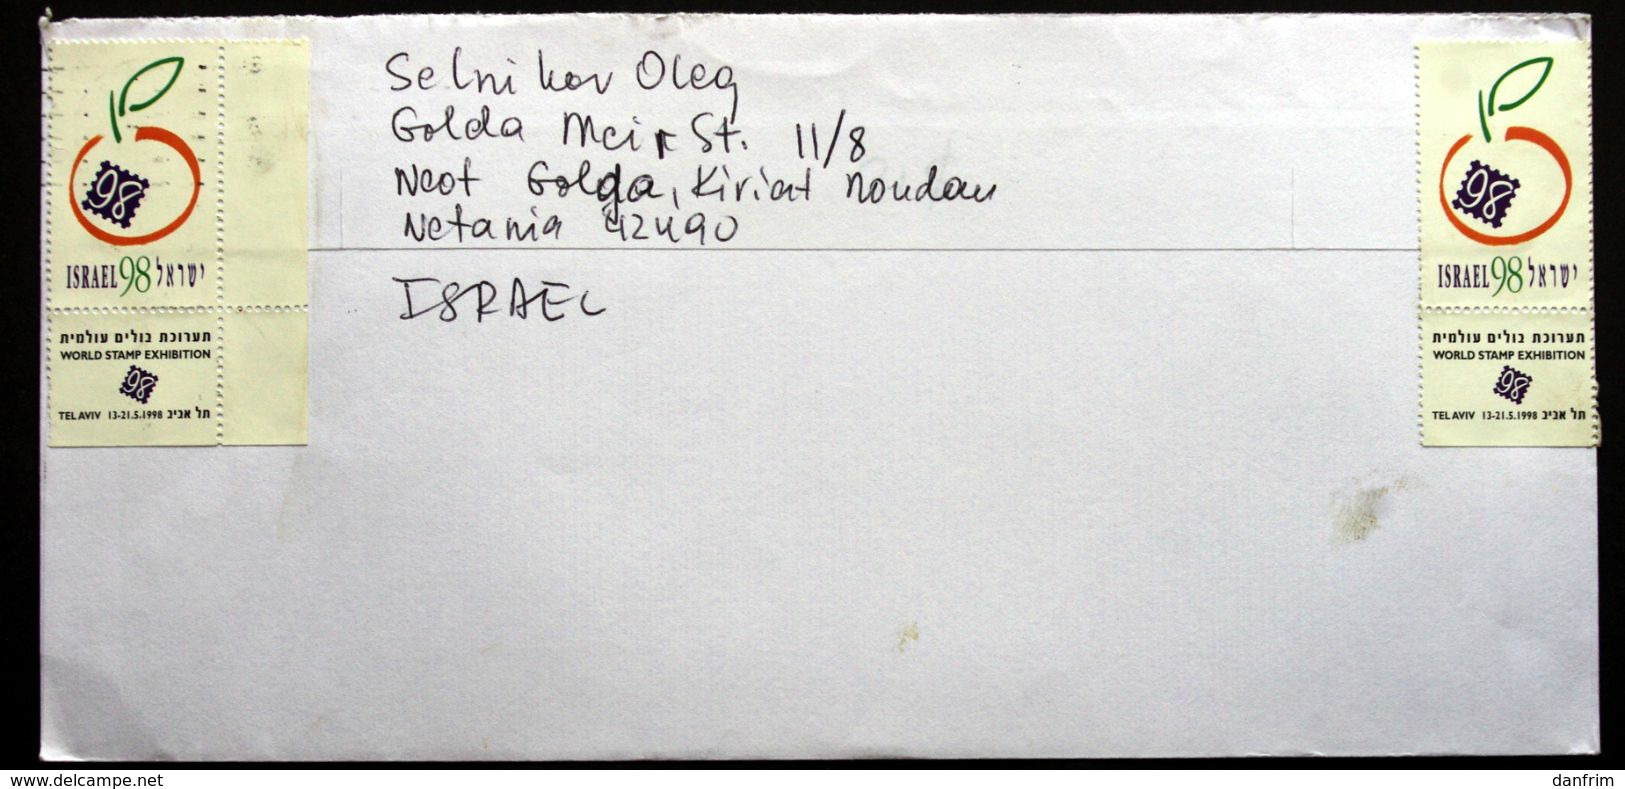 Selnikov Oleg
Golda Meir St. 11/8
Neot Golga, Kiriat Noudau
Netania 42490
ISRAEL
98
ISRAEL 98 ישראל
תערוכת בולים עולמית
WORLD STAMP EXHIBITION
98
TEL AVIV 13-21.5.1998 תל אביב
98
ISRAEL 98 ישראל
תערוכת בולים עולמית
WORLD STAMP EXHIBITION
98
TEL AVIV 13-21.5.1998 תל אביב
www.delcampe.net
danfrim